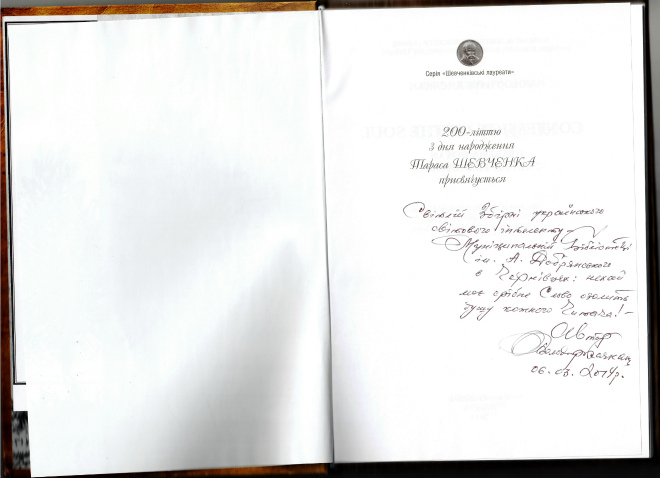 Серія «Шевченківські лауреати»
200-літтю
з дня народження
Тараса ШЕВЧЕНКА
присвячується
Світлій Збірні українського
світового інтелекту –
Муніципальній бібліотеці
ім. А. Добрянського
в Чернівцях: нехай
моє срібне Слово
душу кожного Читача! –
Автор
06.03.2014р.